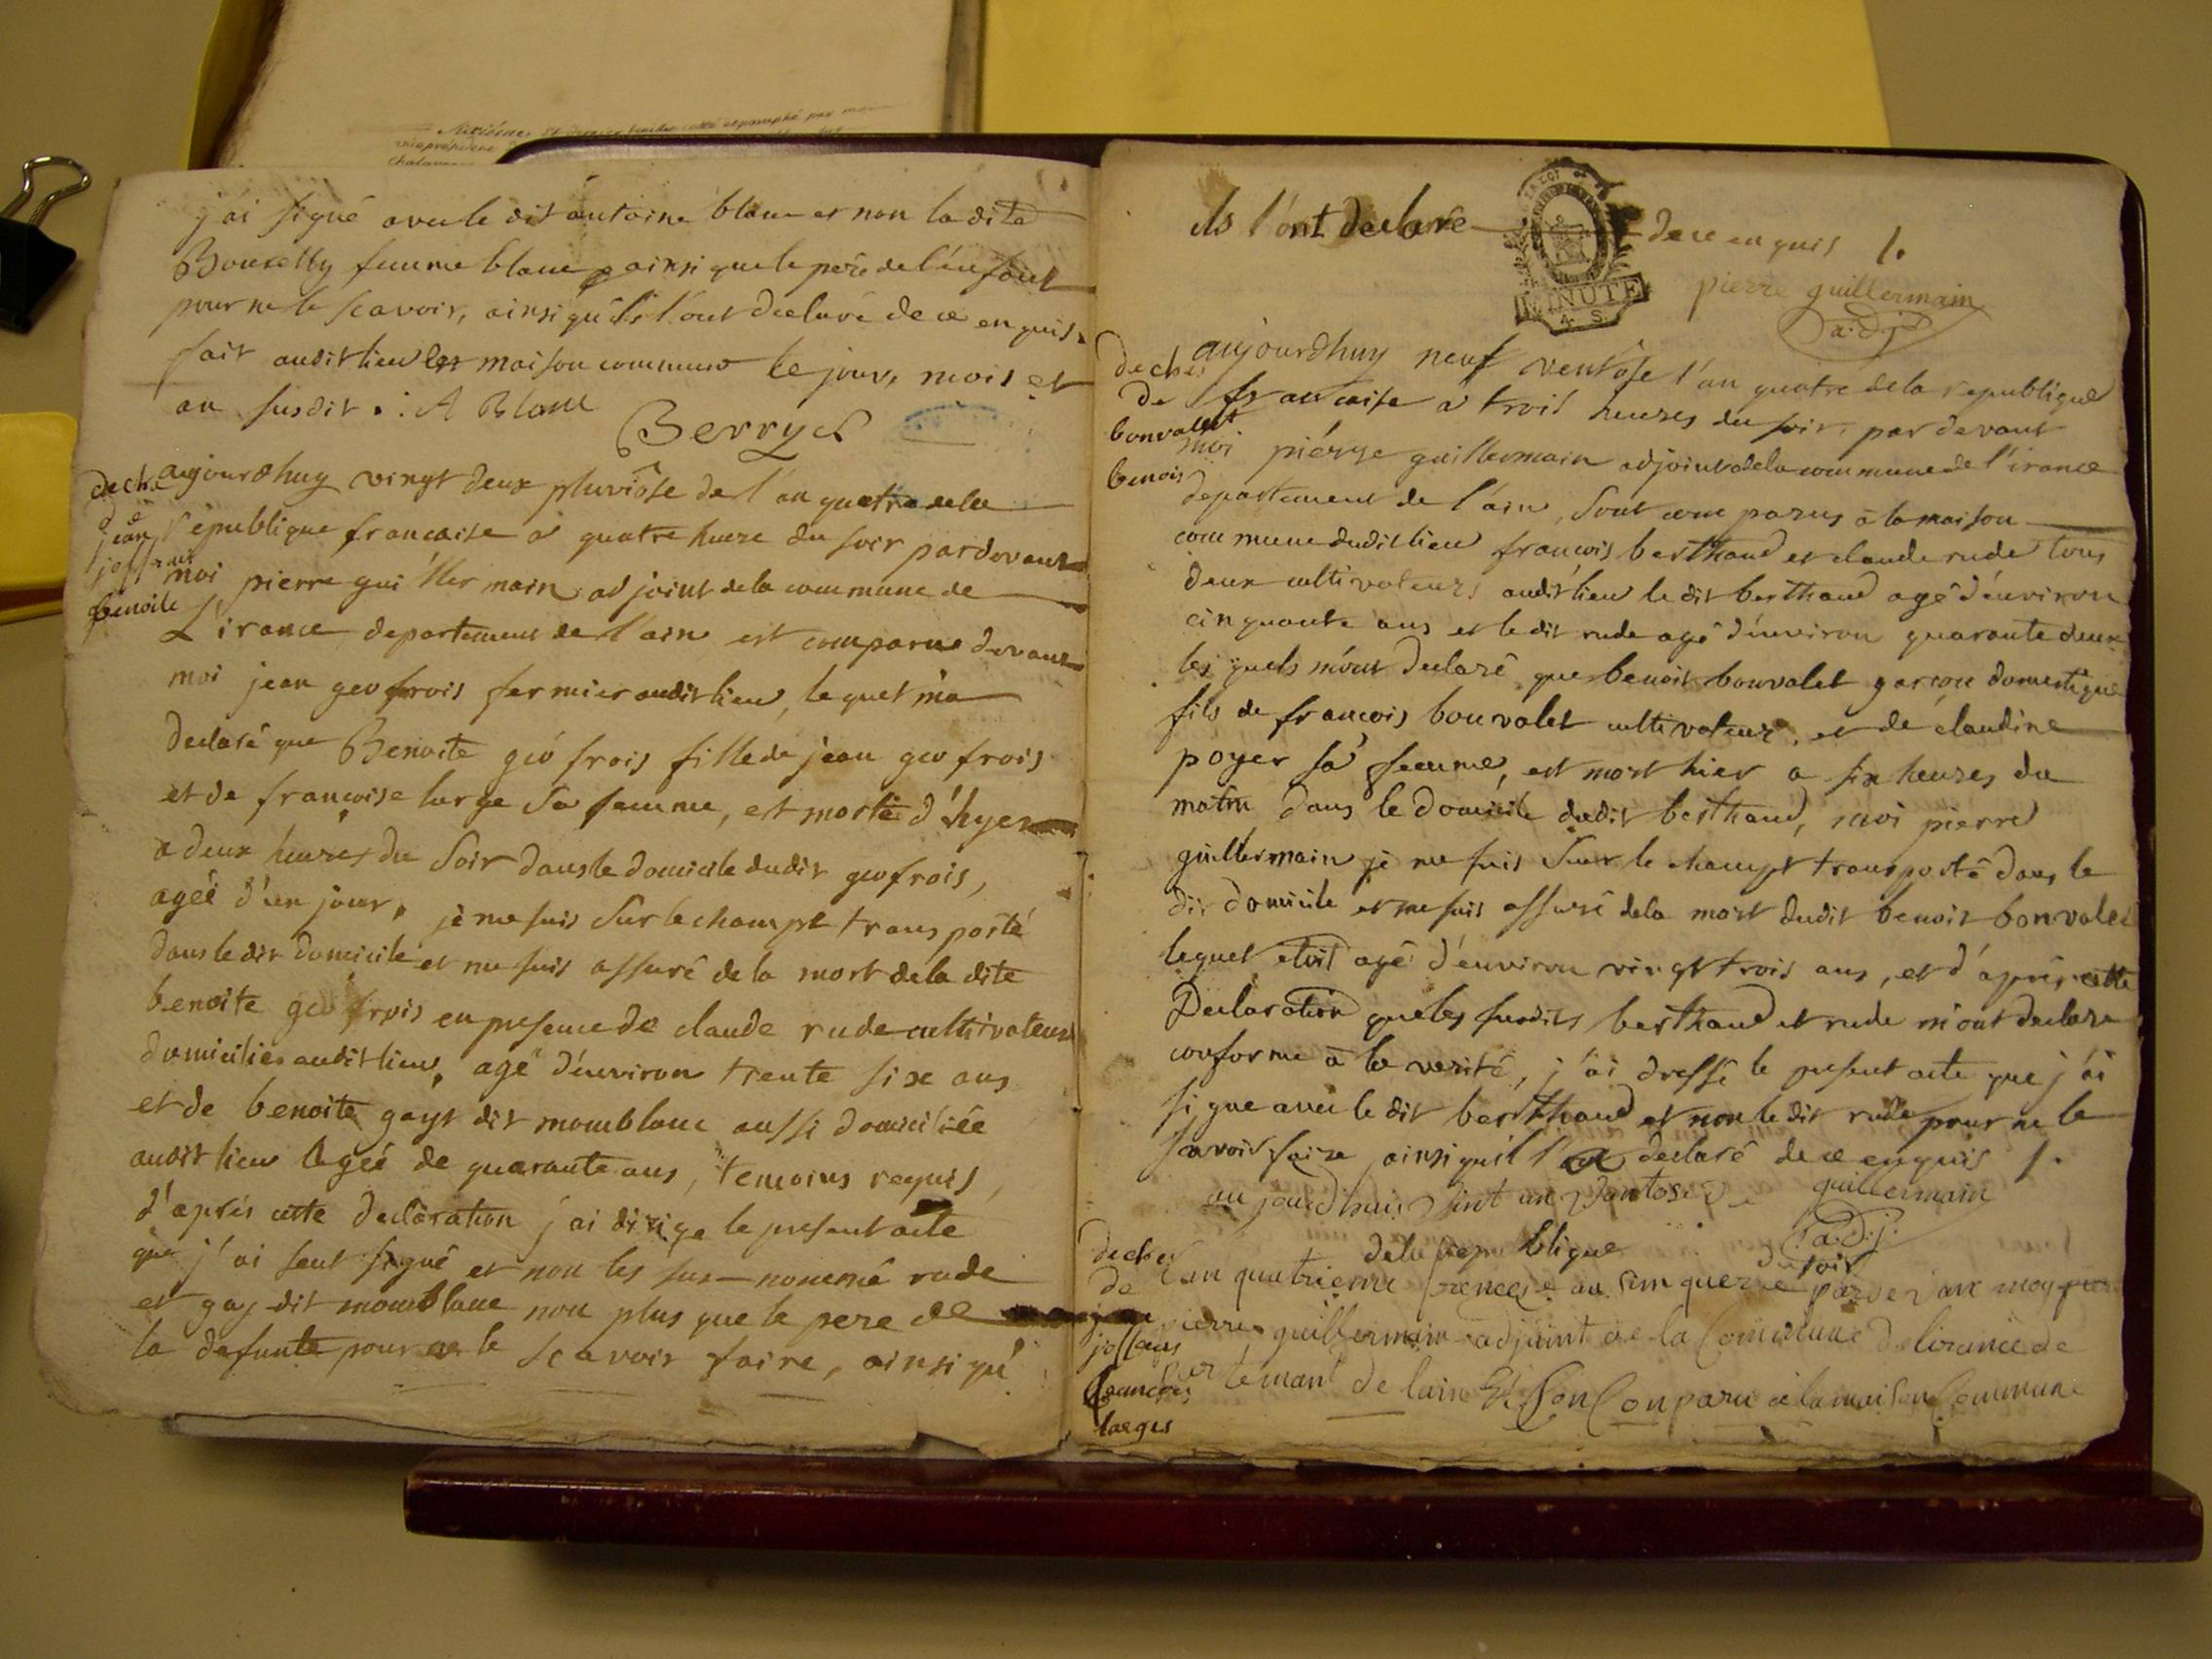 j'ai signé avec le dit antoine blanc et non la dite
femme blanc ainsi que le pere de l'enfant
pour ne le scavoir, ainsi qu'ils l'ont declaré de ce enquis.
fait audit lieu maison commune le jour, mois et
an susdit. A Blanc
Berryer
dechè
de
jean
benoite
aujourdhuy vingt deux pluviôse de l'an quatre de la
republique francaise a quatre heure du soir pardevant
moi pierre guillermain adjoint de la commune de
L'irance departement de l'ain est comparue devant
moi jean geofrois fermier audit lieu, lequel m'a
declaré que Benoite geofrois fille de jean geofrois
et de francoise large sa femme, est morte d'hyer
a deux heures du soir dans le domicile dudit geofrois,
ageé d'un jour, je me suis sur le champt transporté
dans le dit domicile et me suis assuré de la mort de la dite
benoite geofrois en presence de claude rude cultivateur
domicilié audit lieu, agé d'environ trente six ans
et de benoite gayt dit momblanc aussi domiciliée
audit lieu ageé de quarante ans, temoins requis,
d'après cette declaration j'ai dirigé le present acte
que j'ai seul signé et non les sus-nommé rude
et gay dit momblanc non plus que le pere de
la defunte pour ne le scavoir faire, ainsi qu'
ils l'ont declaré de ce enquis /.
LA LOI
MINUTE
4. S.
pierre guillermain
a.d.j
dechès
de
bonvalet
benois
aujourdhuy neuf ventôse l'an quatre de la republique
francaise a trois heures du soir, par devant
moi piérre guillermain adjoint de la commune de l'irance
departement de l'ain, sont comparus à la maison
commune dudit lieu francois berthaud et claude rude tous
deux cultivateurs audit lieu le dit berthaud agé d'environ
cinquante ans et le dit rude agé d'environ quarante deux
lesquels m'ont declaré que benoit bonvalet garçon domestique
fils de francois bonvalet cultivateur, et de claudine
poyer sa femme, est mort hier a six heures du
matin dans le domicile dudit berthaud, moi pierre
guillermain je me suis sur le champt transporté dans le
dit domicile et me suis assuré de la mort dudit benoit bonvalet
lequel etoit agé d'environ vingt trois ans, et d'après cette
Declaration que les susdits berthaud et rude m'ont declaré
conforme à la verité, j'ai dressé le present acte que j'ai
signe avec le dit berthaud et non le dit rude pour ne le
scavoir faire ainsi qu'il l'a declaré de ce enquis /.
guillermain
a.d.j.
dechès
de
francoise
larges
aujourdhui vint un vantose de
de la republique
l'an quatrieme francese au sinq uere du soir parde vant moy
pierre guillermain adjoint de la Commune de lirance de
partemant de lain Et son Conparu a la maison Commune